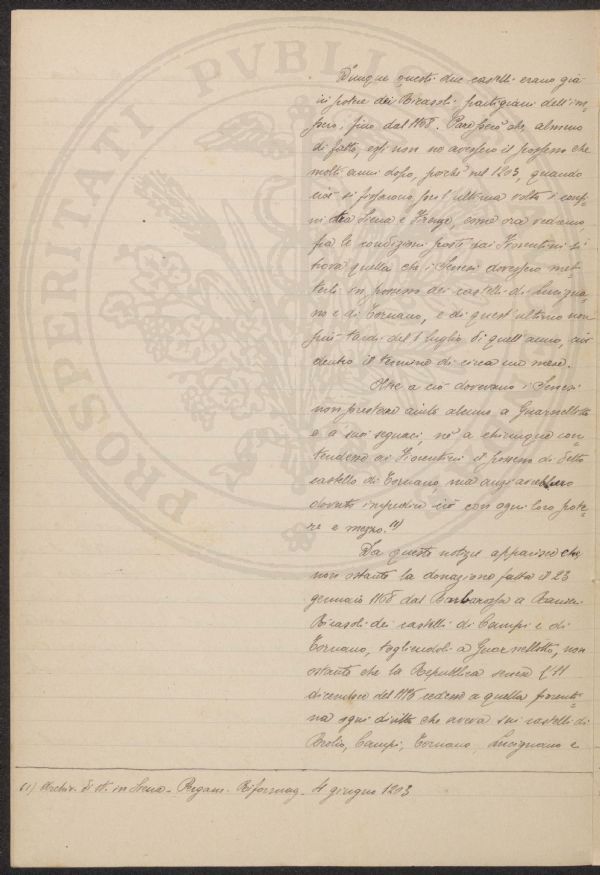 Dunque questi due castelli erano già
in potere dei Ricasoli, partigiani dell'im-
pero, fino dal 1168. Pare però che, almeno
di fatto, egli non ne avessero il possesso che
molti anni dopo, poichè nel 1203, quando
cioè si posarono per l'ultima volta i confi-
ni tra Siena e Firenze, come ora vedremo,
fra le condizioni poste dai Fiorentini si
trova quella che i Senesi dovessero met-
terli in possesso dei castelli di Lucigna-
no e di Tornano, e di quest'ultimo non
più tardi del 1 luglio di quell'anno, cioè
dentro il termine di circa un mese.
Oltre a ciò dovevano i Senesi
non prestare aiuto alcuno a Guarnellotto
e a' suoi seguaci, nè a chiunque con-
tendesse ai Fiorentini il possesso di detto
castello di Tornano, ma anzi avrebbero
dovuto impedire ciò con ogni loro pote-
re e mezzo. (1)
Da queste notizie apparisce che,
non ostante la donazione fatta il 23
gennaio 1168 dal Barbarossa a Ranieri
Ricasoli dei castelli di Campi e di
Tornano, togliendoli a Guarnellotto, non
ostante che la Repubblica senese l'11
dicembre del 1176 cedesse a quella fiorenti-
na ogni diritto che aveva sui castelli di
Brolio, Campi, Tornano, Lucignano e
(1) Archiv. di St. in Siena - Pergam. Riformag. 4 giugno 1203
PROSPERITATI PVBLIC